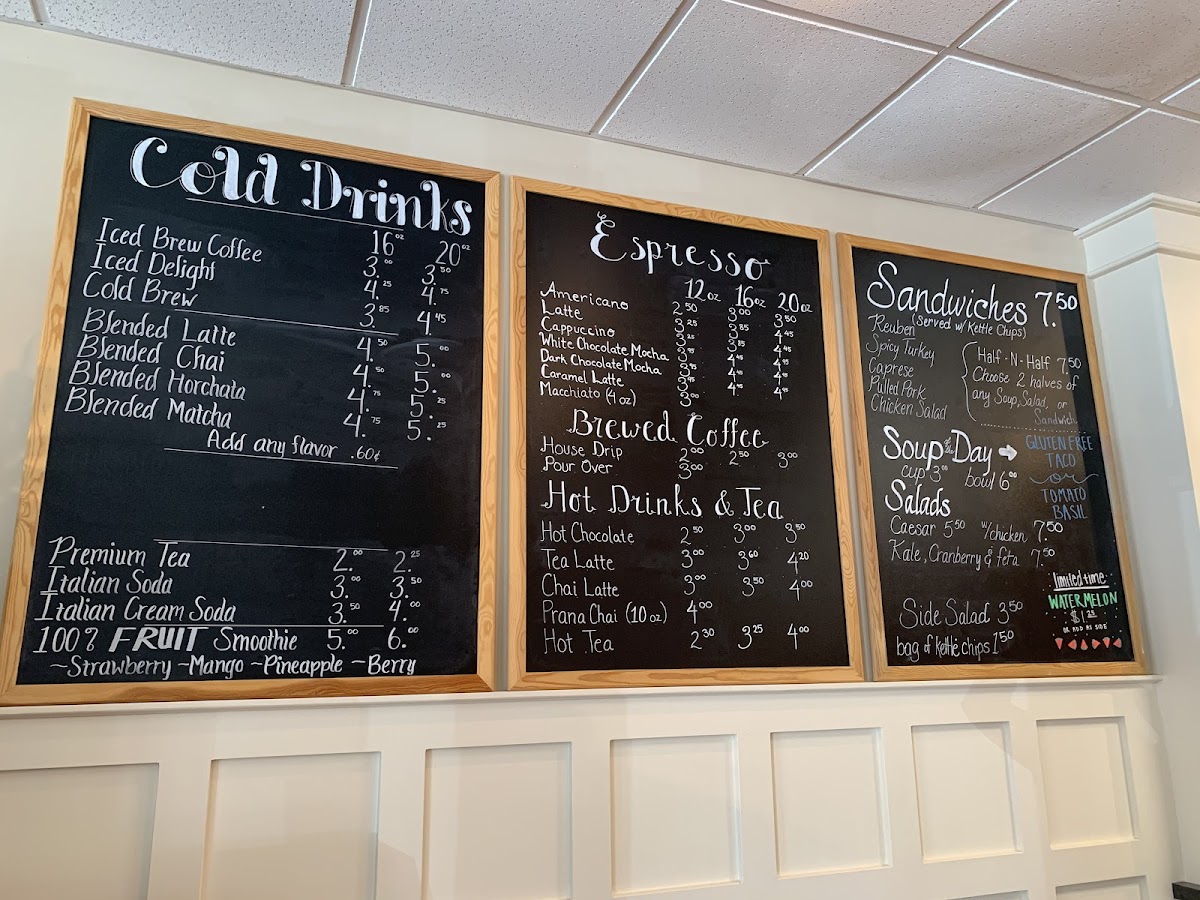 Cold Drinks
16 oz 20 oz
Iced Brew Coffee 3.00 3.50
Iced Delight 4.25 4.75
Cold Brew 3.85 4.45
Blended Latte 4.50 5.00
Blended Chai 4.50 5.00
Blended Horchata 4.75 5.25
Blended Matcha 4.75 5.25
Add any flavor .60¢
Premium Tea 2.00 2.25
Italian Soda 3.00 3.50
Italian Cream Soda 3.50 4.00
100% FRUIT Smoothie 5.00 6.00
~Strawberry ~Mango ~Pineapple ~Berry
Espresso
12 oz 16 oz 20 oz
Americano 2.50 3.00 3.50
Latte 3.25 3.85 4.45
Cappuccino 3.25 3.85 4.45
White Chocolate Mocha 3.95 4.45 4.95
Dark Chocolate Mocha 3.95 4.45 4.95
Caramel Latte 3.95 4.45 4.95
Macchiato (4 oz) 3.00
Brewed Coffee
House Drip 2.00 2.50 3.00
Pour Over 3.00
Hot Drinks & Tea
Hot Chocolate 2.50 3.00 3.50
Tea Latte 3.00 3.60 4.20
Chai Latte 3.00 3.50 4.00
Prana Chai (10 oz) 4.00
Hot Tea 2.30 3.25 4.00
Sandwiches 7.50
(Served w/ Kettle Chips)
Reuben
Spicy Turkey
Caprese
Pulled Pork
Chicken Salad
Half-N-Half 7.50
Choose 2 halves of
any Soup, Salad, or
Sandwich
Soup of the Day →
cup 3.00 bowl 6.00
GLUTEN FREE
TACO
or
TOMATO
BASIL
Salads
Caesar 5.50 w/chicken 7.50
Kale, Cranberry & feta 7.50
Side Salad 3.50
bag of kettle chips 1.50
limited time
WATERMELON
$1.25
OR ADD AS SIDE